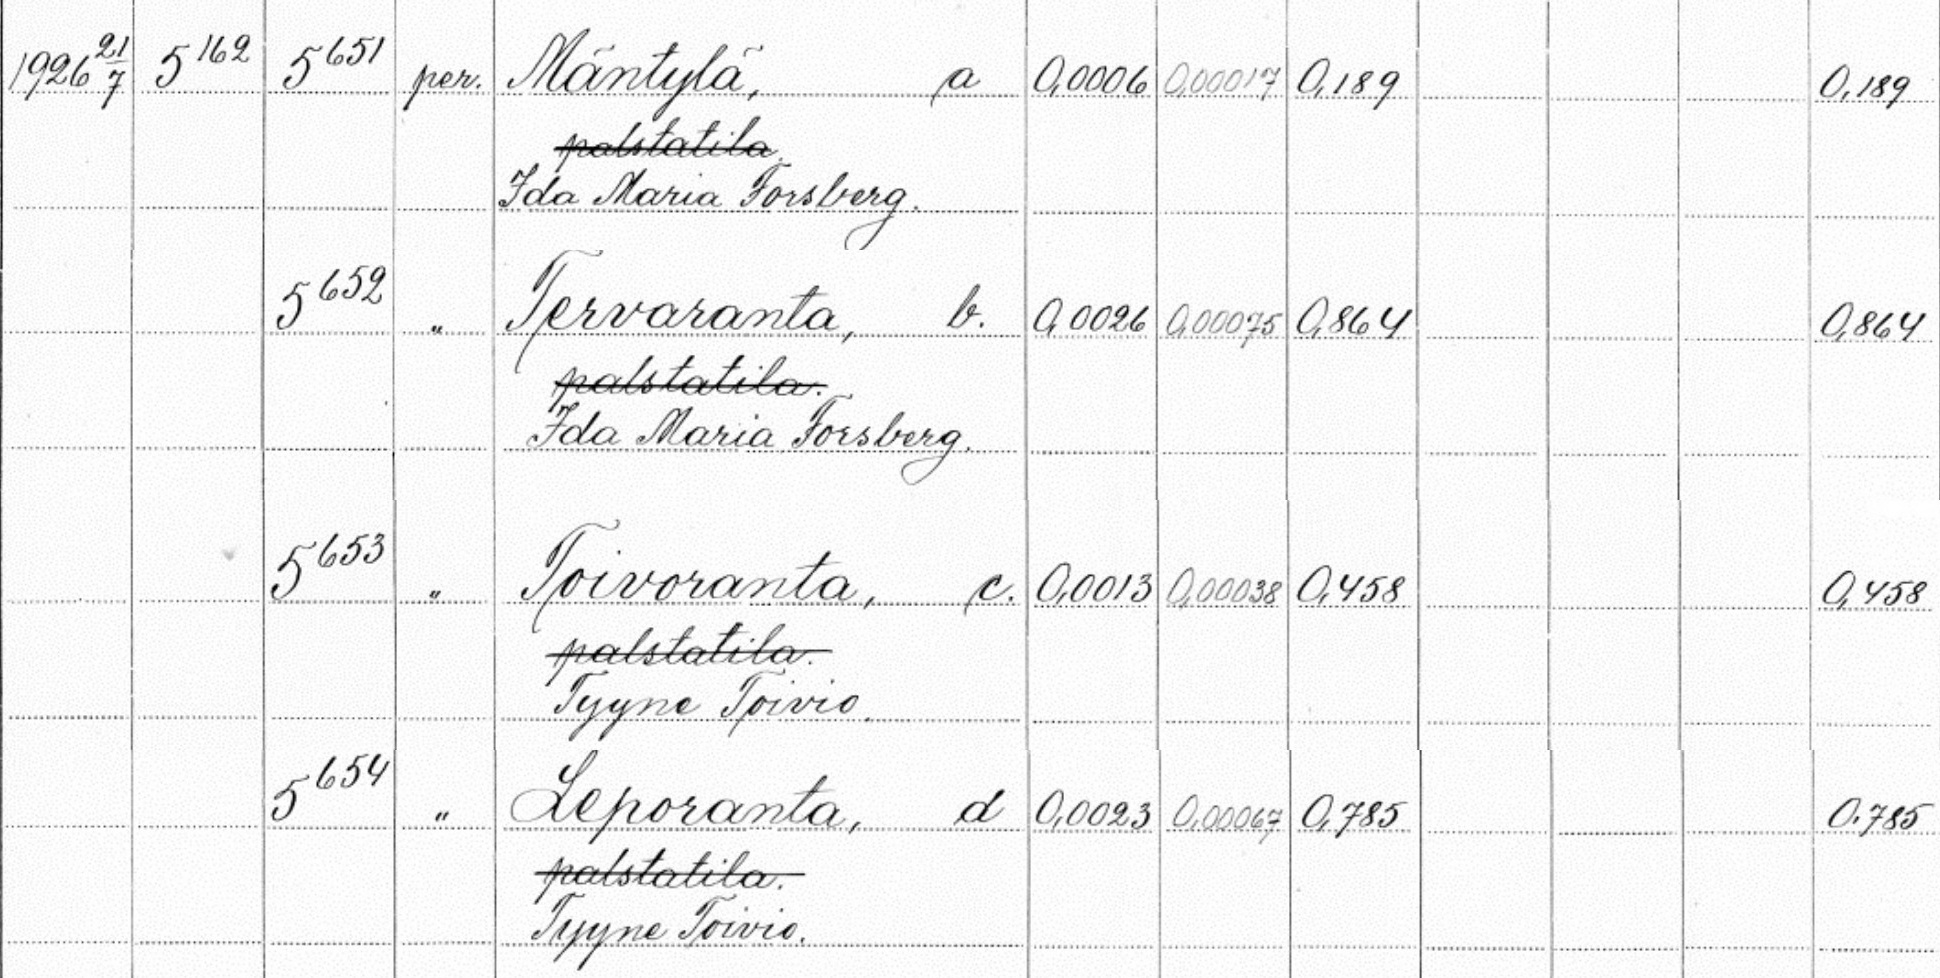 1926 21/7 5 162 5 651 per. Mäntylä, a 0,0006 0,00017 0,189 0,189
palstatila.
Ida Maria Forsberg.
5 652 " Tervaranta, b. 0,0026 0,00075 0,864 0,864
palstatila.
Ida Maria Forsberg.
5 653 " Toivoranta, c. 0,0013 0,00038 0,458 0,458
palstatila.
Tyyne Toivio.
5 654 " Leporanta, d 0,0023 0,00067 0,785 0.785
palstatila.
Tyyne Toivio.